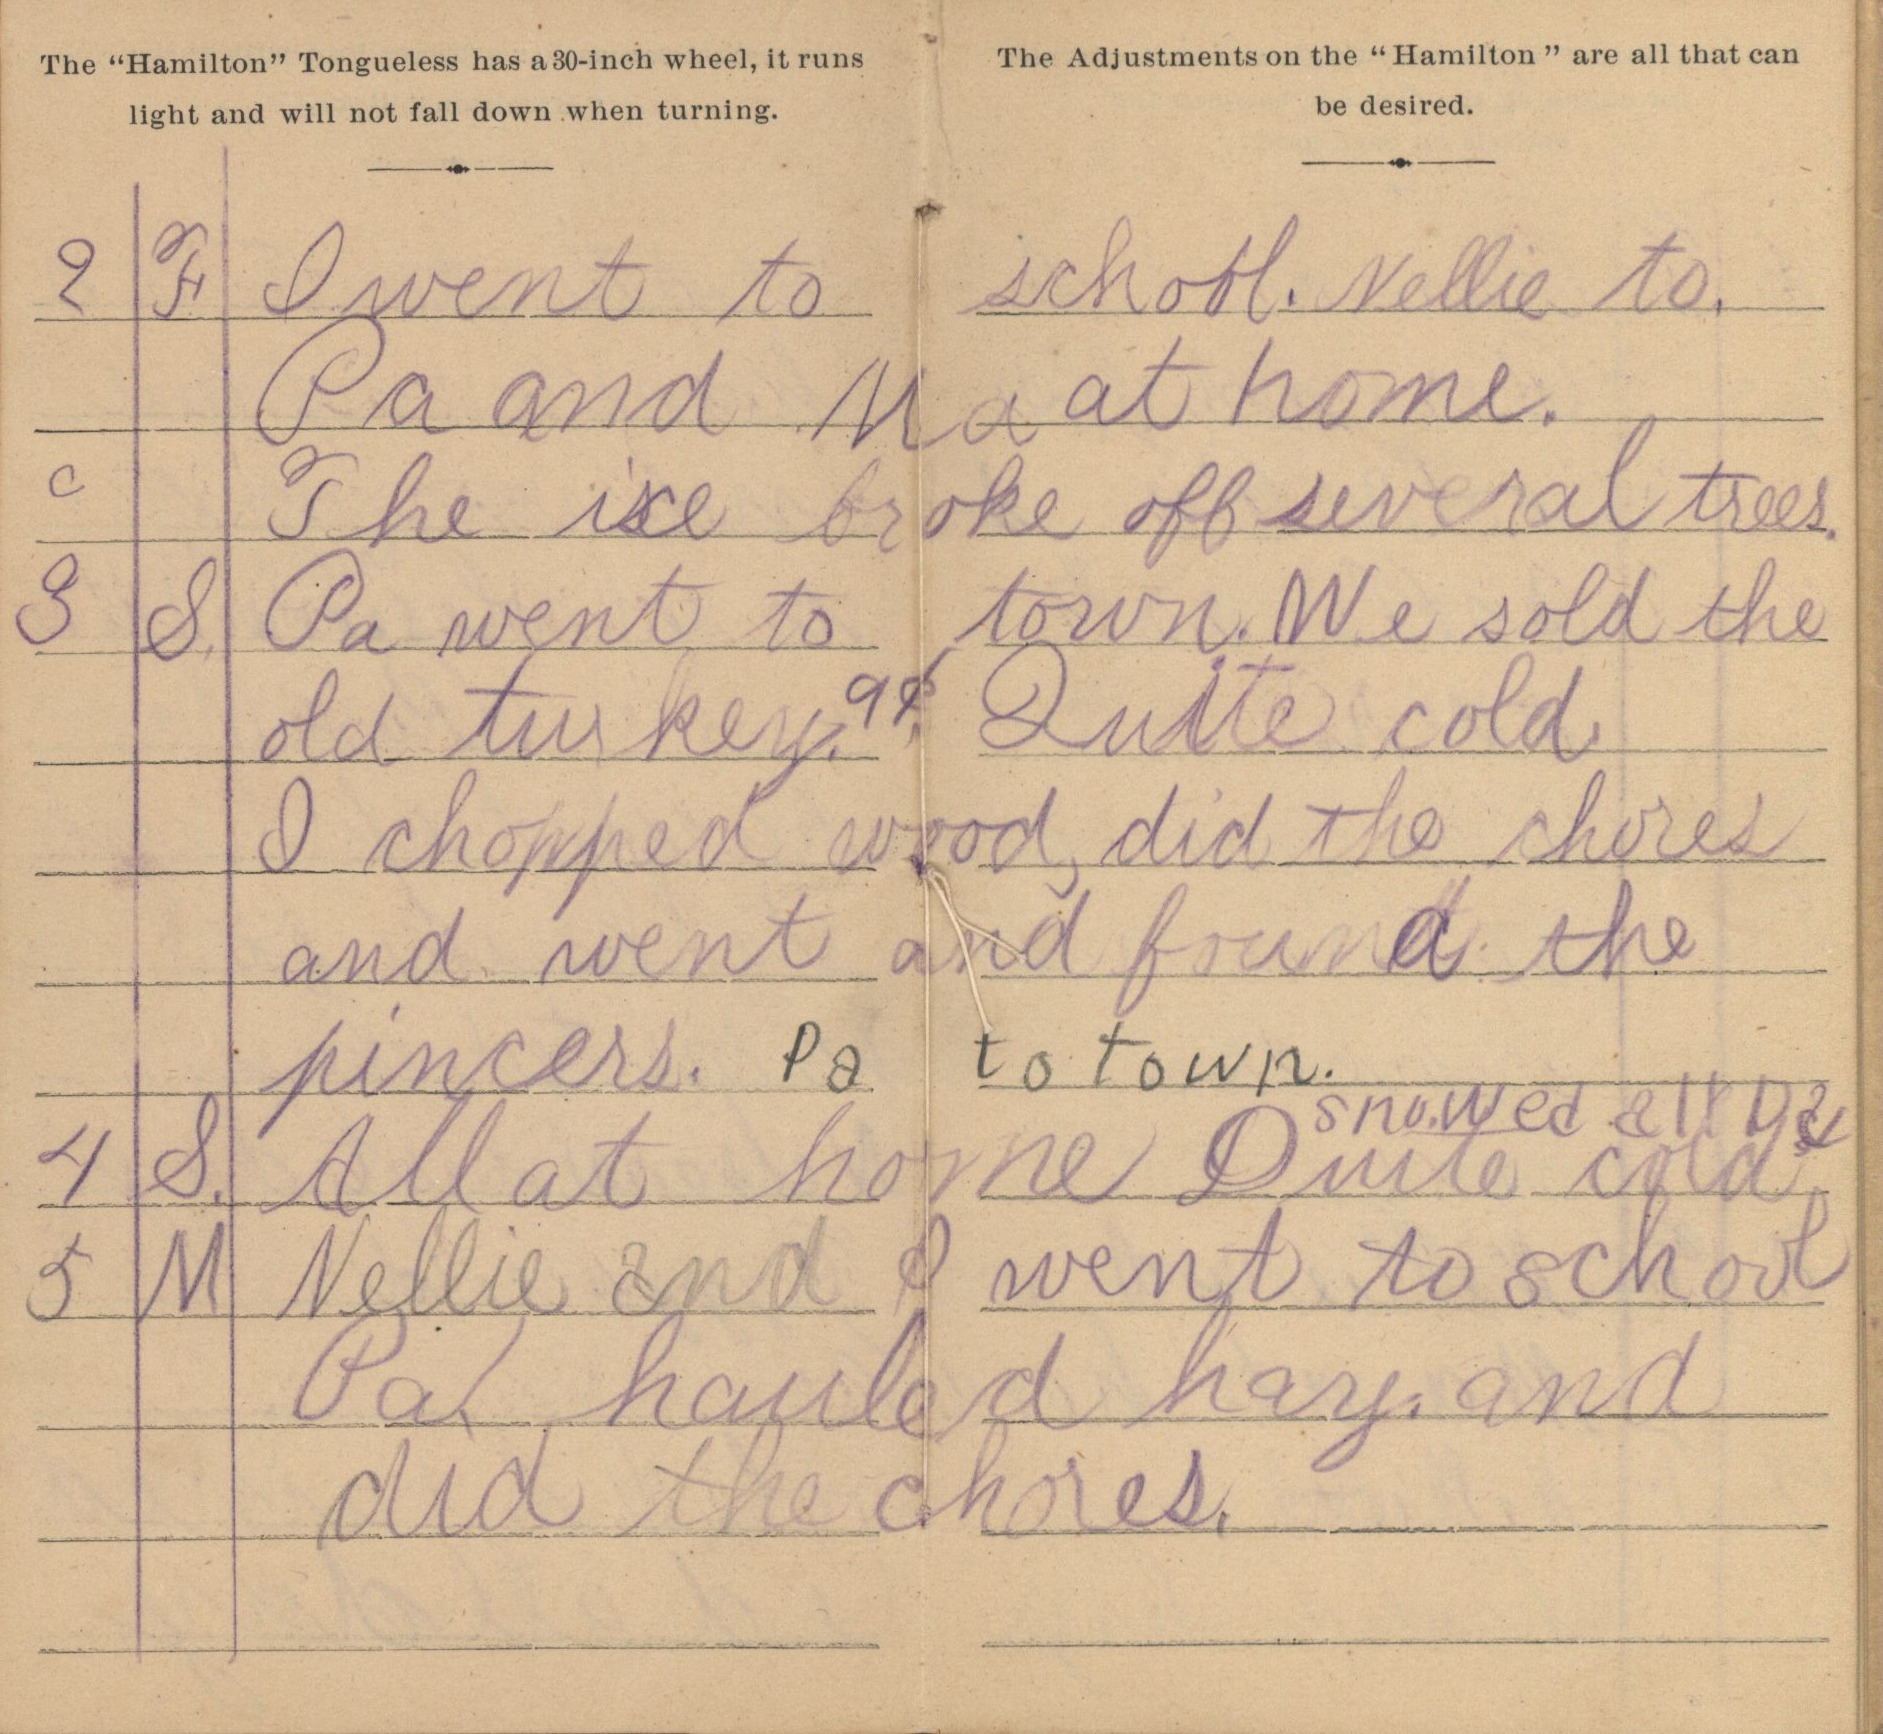 The “Hamilton” Tongueless has a 30-inch wheel, it runs
light and will not fall down when turning.
The Adjustments on the “Hamilton” are all that can
be desired.
2 F I went to school. Nellie to.
Pa and Ma at home.
c The ice broke off several trees.
3 S. Pa went to town. We sold the
old turkey. 9¢. Quite cold.
I chopped wood, did the chores
and went and found the
pincers. Pa to town.
snowed all Day
4 S. All at home Quite cold.
5 M Nellie and I went to school
Pa hauled hay. and
did the chores.